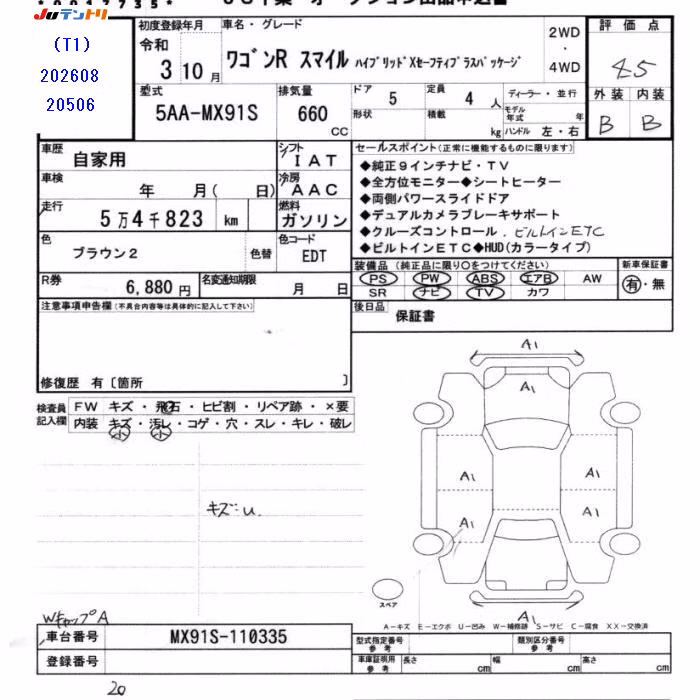 JUテントリ
(T1)
202608
20506
初度登録年月
令和
3 10 月
車名・グレード
ワゴンR スマイル ハイブリッドXセーフティプラスパッケージ
2WD
・
4WD
評価点
4.5
外装 内装
B B
型式
5AA-MX91S
排気量
660
CC
ドア
5
定員
4 人
形状
積載
kg
ディーラー・並行
モデル年式 年
ハンドル 左・右
車歴
自家用
シフト
I A T
車検
年 月( 日)
冷房
A A C
走行
5万4千823 km
燃料
ガソリン
色
ブラウン2
色替
色コード
EDT
R券
6,880 円
名変通知期限
月 日
セールスポイント(正常に機能するものに限ります)
◆純正9インチナビ・TV
◆全方位モニター◆シートヒーター
◆両側パワースライドドア
◆デュアルカメラブレーキサポート
◆クルーズコントロール . ビルトインETC
◆ビルトインETC◆HUD(カラータイプ)
装備品 (純正品に限り○をつけてください)
PS PW ABS エアB AW
SR ナビ TV カワ
新車保証書
有・無
後日品
保証書
注意事項申告欄(不具合内容等は具体的に記入して下さい)
修復歴 有〔箇所 〕
検査員
記入欄
FW キズ・飛石・ヒビ割・リペア跡・×要
内装 キズ・汚レ・コゲ・穴・スレ・キレ・破レ
小 小
キズ:U.
A1
A1
A1
A1
A1
A1
A1
スペア
A-キズ E-エクボ U-凹み W-補修跡 S-サビ C-腐食 XX-交換済
WキャップA
車台番号
MX91S-110335
登録番号
型式指定番号
参考
類別区分番号
参考
車庫証明用
参考
長さ cm
幅 cm
高さ cm
20